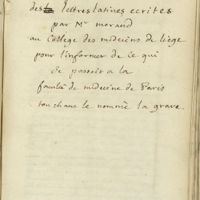 des lettres latines ecrites
par Mr morand
au College des medecins de liege
pour l'informer de ce qui
se passoit a la
faculté de medecine de Paris
touchant le nommé la grave.